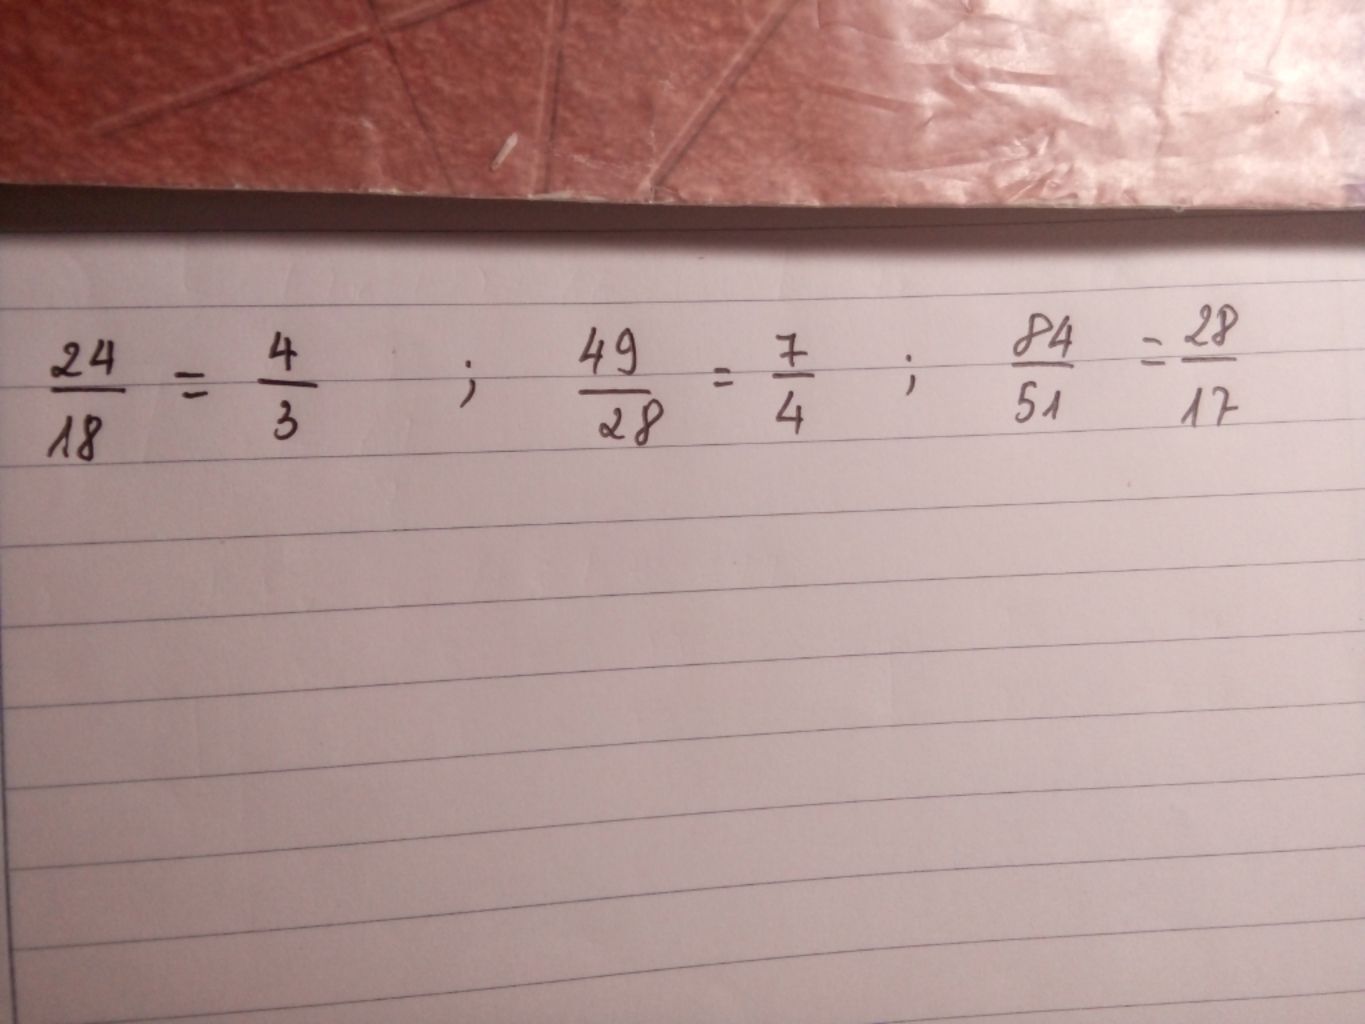 24/18 = 4/3 ; 49/28 = 7/4 ; 84/51 = 28/17